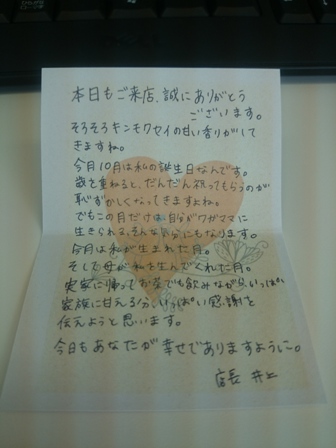 本日もご来店、誠にありがとう
ございます。
そろそろキンモクセイの甘い香りがして
きますね。
今月10月は私の誕生日なんです。
歳を重ねると、だんだん祝ってもらうのが
恥ずかしくなってきますよね。
でもこの月だけは、自分がワガママに
生きられる、そんな気分にもなります。
今月は私が生まれた月。
そして母が私を生んでくれた月。
実家に帰ってお茶でも飲みながらいっぱい
家族に甘える分、いっぱい感謝を
伝えようと思います。
今日もあなたが幸せでありますように。
店長 井上